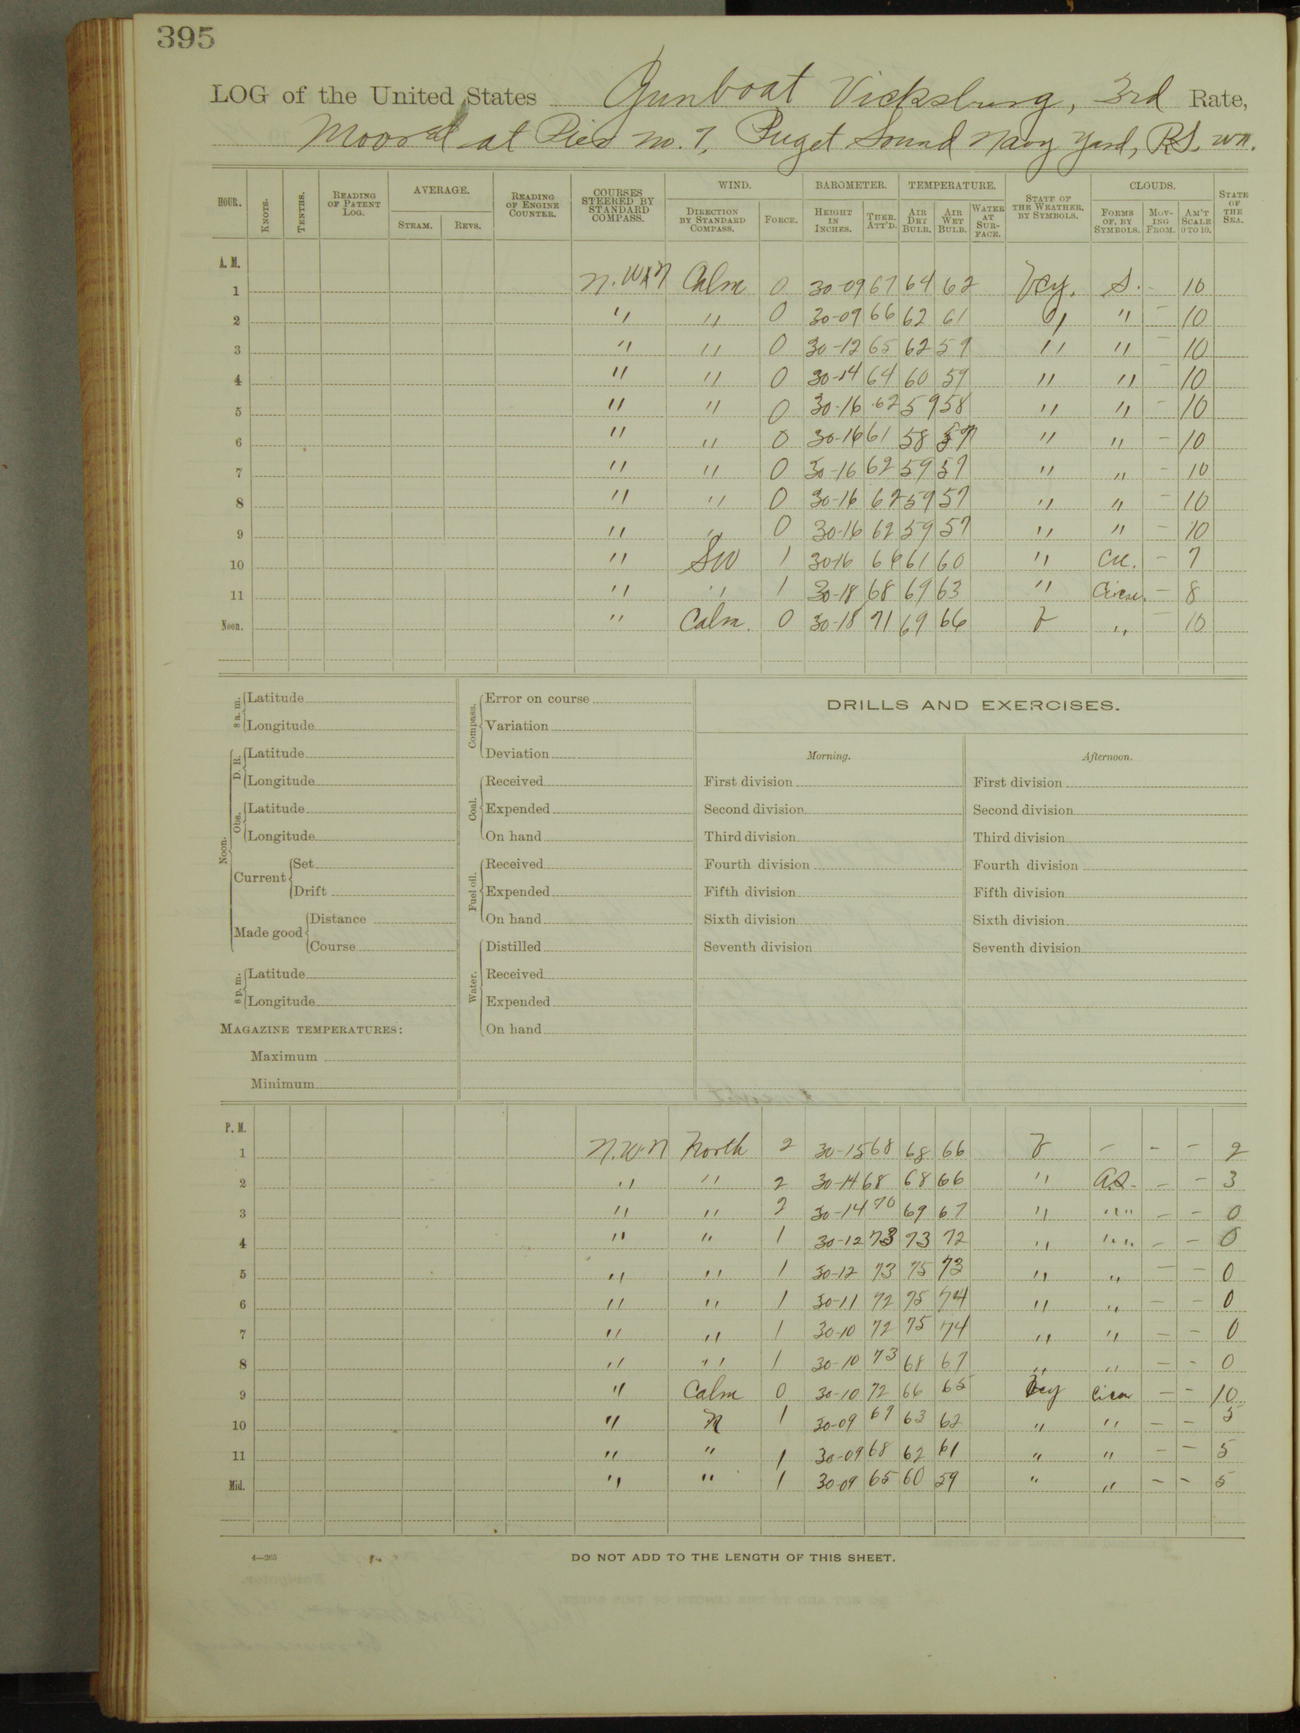 395
LOG of the United States Gunboat Vicksburg, 3rd Rate,
Moored at Pier no. 7, Puget Sound Navy Yard, P.S. Wn.
HOUR. KNOTS. TENTHS. READING OF PATENT LOG. AVERAGE. STEAM. REVS. READING OF ENGINE COUNTER. COURSES STEERED BY STANDARD COMPASS. WIND. DIRECTION BY STANDARD COMPASS. FORCE. BAROMETER. HEIGHT IN INCHES. THER. ATT'D. TEMPERATURE. AIR DRY BULB. AIR WET BULB. WATER AT SURFACE. STATE OF THE WEATHER, BY SYMBOLS. CLOUDS. FORMS OF, BY SYMBOLS. MOVING FROM. AM'T SCALE 0 TO 10. STATE OF THE SEA.
A. M.
1 N.WxN Calm 0 30-09 67 64 62 S. - 10
2 " " 0 30-09 66 62 61 " " - 10
3 " " 0 30-12 65 62 59 " " - 10
4 " " 0 30-14 64 60 59 " " - 10
5 " " 0 30-16 62 59 58 " " - 10
6 " " 0 30-16 61 58 57 " " - 10
7 " " 0 30-16 62 59 57 " " - 10
8 " " 0 30-16 62 59 57 " " - 10
9 " " 0 30-16 62 59 57 " " - 10
10 " SW 1 30-16 66 61 60 " Cu. - 7
11 " " 1 30-18 68 69 63 " - 8
Noon. " Calm. 0 30-18 71 69 66 " - 10
8 a. m. Latitude
Longitude
Noon. D. R. Latitude
Longitude
Obs. Latitude
Longitude
Current Set
Drift
Made good Distance
Course
8 p. m. Latitude
Longitude
MAGAZINE TEMPERATURES:
Maximum
Minimum
Compass. Error on course
Variation
Deviation
Coal. Received
Expended
On hand
Fuel oil. Received
Expended
On hand
Water. Distilled
Received
Expended
On hand
DRILLS AND EXERCISES.
Morning. Afternoon.
First division First division
Second division Second division
Third division Third division
Fourth division Fourth division
Fifth division Fifth division
Sixth division Sixth division
Seventh division Seventh division
P. M.
1 N.W.N North 2 30-15 68 68 66 - - - 2
2 " " 2 30-14 68 68 66 " - - 3
3 " " 2 30-14 70 69 67 " "" - - 0
4 " " 1 30-12 73 73 72 " "" - - 0
5 " " 1 30-12 73 75 73 " " - - 0
6 " " 1 30-11 72 75 74 " " - - 0
7 " " 1 30-10 72 75 74 " " - - 0
8 " " 1 30-10 73 68 67 " " - - 0
9 " Calm 0 30-10 72 66 65 - - 10
10 " N 1 30-09 69 63 62 " " - - 5
11 " " 1 30-09 68 62 61 " " - - 5
Mid. " " 1 30-09 65 60 59 " " - - 5
4—265
DO NOT ADD TO THE LENGTH OF THIS SHEET.